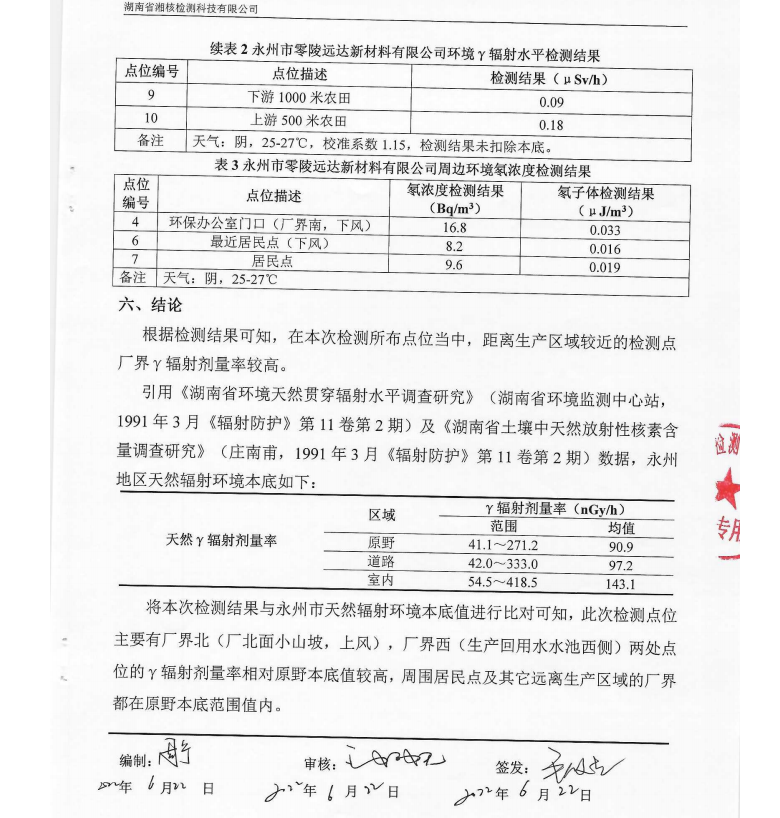 湖南省湘核检测科技有限公司
续表 2 永州市零陵远达新材料有限公司环境 γ 辐射水平检测结果
点位编号 点位描述 检测结果（μSv/h）
9 下游 1000 米农田 0.09
10 上游 500 米农田 0.18
备注 天气：阴，25-27℃，校准系数 1.15，检测结果未扣除本底。
表 3 永州市零陵远达新材料有限公司周边环境氡浓度检测结果
点位编号 点位描述 氡浓度检测结果（Bq/m³） 氡子体检测结果（μJ/m³）
4 环保办公室门口（厂界南，下风） 16.8 0.033
6 最近居民点（下风） 8.2 0.016
7 居民点 9.6 0.019
备注 天气：阴，25-27℃
六、结论
根据检测结果可知，在本次检测所布点位当中，距离生产区域较近的检测点
厂界 γ 辐射剂量率较高。
引用《湖南省环境天然贯穿辐射水平调查研究》（湖南省环境监测中心站，
1991 年 3 月《辐射防护》第 11 卷第 2 期）及《湖南省土壤中天然放射性核素含
量调查研究》（庄南甫，1991 年 3 月《辐射防护》第 11 卷第 2 期）数据，永州
地区天然辐射环境本底如下：
天然 γ 辐射剂量率 区域 γ 辐射剂量率（nGy/h）
范围 均值
原野 41.1～271.2 90.9
道路 42.0～333.0 97.2
室内 54.5～418.5 143.1
将本次检测结果与永州市天然辐射环境本底值进行比对可知，此次检测点位
主要有厂界北（厂北面小山坡，上风），厂界西（生产回用水水池西侧）两处点
位的 γ 辐射剂量率相对原野本底值较高，周围居民点及其它远离生产区域的厂界
都在原野本底范围值内。
检测
专用
编制： 审核： 签发：
2022年 6月22 日 2022年 6 月 22 日 2022年 6 月 22日